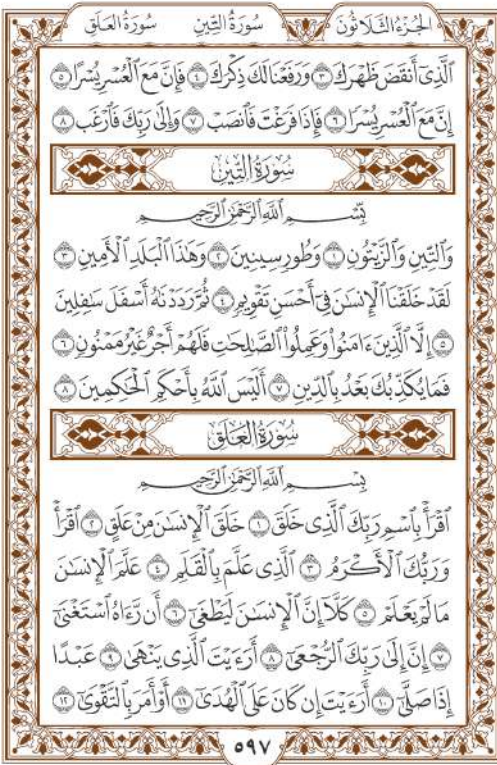 الجزء الثلاثون سورة التين سورة العلق
ٱلَّذِىٓ أَنقَضَ ظَهْرَكَ ٣ وَرَفَعْنَا لَكَ ذِكْرَكَ ٤ فَإِنَّ مَعَ ٱلْعُسْرِ يُسْرًا ٥
إِنَّ مَعَ ٱلْعُسْرِ يُسْرًا ٦ فَإِذَا فَرَغْتَ فَٱنصَبْ ٧ وَإِلَىٰ رَبِّكَ فَٱرْغَب ٨
سُورَةُ التِّينِ
بِّسْمِ ٱللَّهِ ٱلرَّحْمَٰنِ ٱلرَّحِيمِ
وَٱلتِّينِ وَٱلزَّيْتُونِ ١ وَطُورِ سِينِينَ ٢ وَهَٰذَا ٱلْبَلَدِ ٱلْأَمِينِ ٣
لَقَدْ خَلَقْنَا ٱلْإِنسَٰنَ فِىٓ أَحْسَنِ تَقْوِيمٍ ٤ ثُمَّ رَدَدْنَٰهُ أَسْفَلَ سَٰفِلِينَ
٥ إِلَّا ٱلَّذِينَ ءَامَنُوا۟ وَعَمِلُوا۟ ٱلصَّٰلِحَٰتِ فَلَهُمْ أَجْرٌ غَيْرُ مَمْنُونٍ ٦
فَمَا يُكَذِّبُكَ بَعْدُ بِٱلدِّينِ ٧ أَلَيْسَ ٱللَّهُ بِأَحْكَمِ ٱلْحَٰكِمِينَ ٨
سُورَةُ العَلَقِ
بِسْمِ ٱللَّهِ ٱلرَّحْمَٰنِ ٱلرَّحِيمِ
ٱقْرَأْ بِٱسْمِ رَبِّكَ ٱلَّذِى خَلَقَ ١ خَلَقَ ٱلْإِنسَٰنَ مِنْ عَلَقٍ ٢ ٱقْرَأْ
وَرَبُّكَ ٱلْأَكْرَمُ ٣ ٱلَّذِى عَلَّمَ بِٱلْقَلَمِ ٤ عَلَّمَ ٱلْإِنسَٰنَ
مَا لَمْ يَعْلَمْ ٥ كَلَّآ إِنَّ ٱلْإِنسَٰنَ لَيَطْغَىٰٓ ٦ أَن رَّءَاهُ ٱسْتَغْنَىٰٓ
٧ إِنَّ إِلَىٰ رَبِّكَ ٱلرُّجْعَىٰٓ ٨ أَرَءَيْتَ ٱلَّذِى يَنْهَىٰ ٩ عَبْدًا
إِذَا صَلَّىٰٓ ١٠ أَرَءَيْتَ إِن كَانَ عَلَى ٱلْهُدَىٰٓ ١١ أَوْ أَمَرَ بِٱلتَّقْوَىٰٓ ١٢
٥٩٧